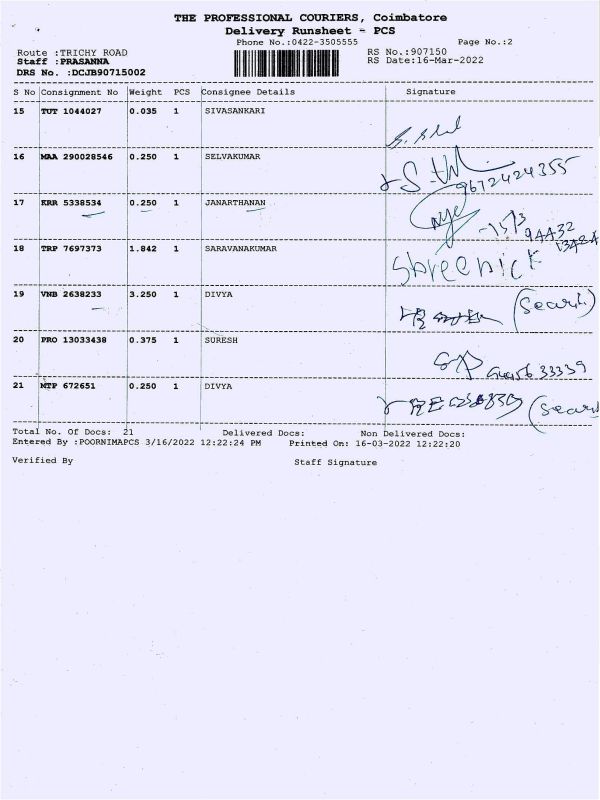 THE PROFESSIONAL COURIERS, Coimbatore
Delivery Runsheet - PCS
Phone No.:0422-3505555 Page No.:2
Route :TRICHY ROAD RS No.:907150
Staff :PRASANNA RS Date:16-Mar-2022
DRS No. :DCJB90715002
S No Consignment No Weight PCS Consignee Details Signature
15 TUT 1044027 0.035 1 SIVASANKARI
16 MAA 290028546 0.250 1 SELVAKUMAR
9672424355
17 KRR 5338534 0.250 1 JANARTHANAN
18 TRP 7697373 1.842 1 SARAVANAKUMAR
19 VNB 2638233 3.250 1 DIVYA
20 PRO 13033438 0.375 1 SURESH
21 MTP 672651 0.250 1 DIVYA
Total No. Of Docs: 21 Delivered Docs: Non Delivered Docs:
Entered By :POORNIMAPCS 3/16/2022 12:22:24 PM Printed On: 16-03-2022 12:22:20
Verified By Staff Signature